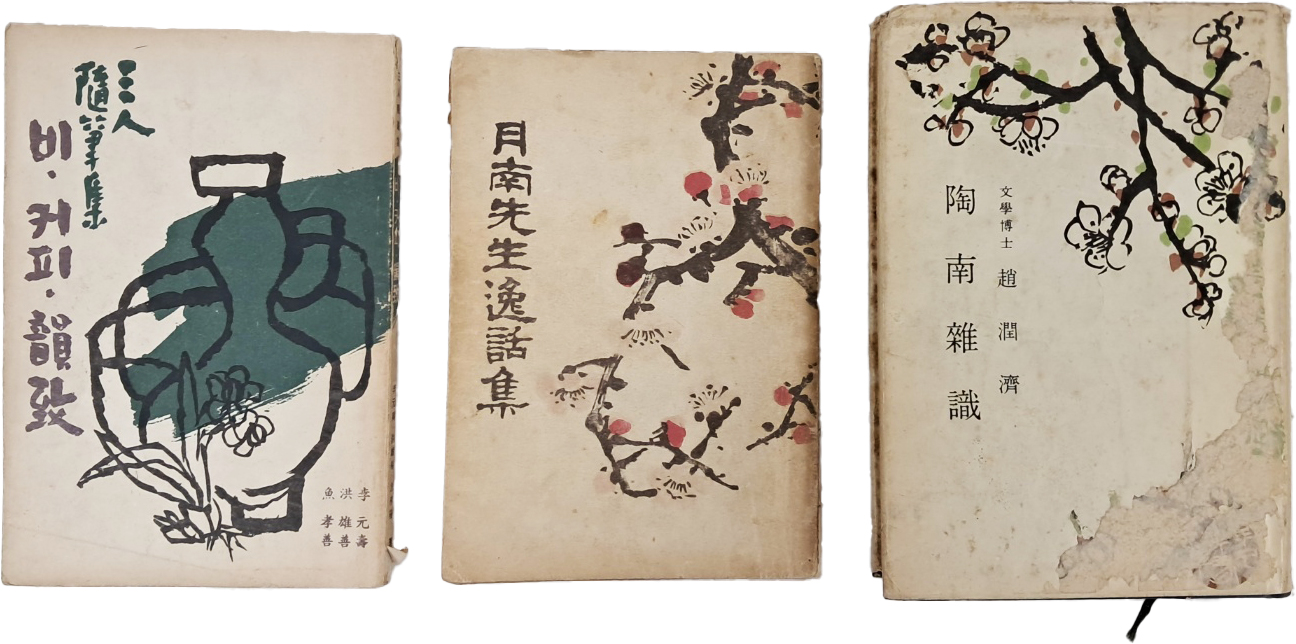 三人
隨筆集
비·커피·韻致
李元壽
洪雄善
魚孝善
月南先生逸話集
文學博士 趙潤濟
陶南雜識